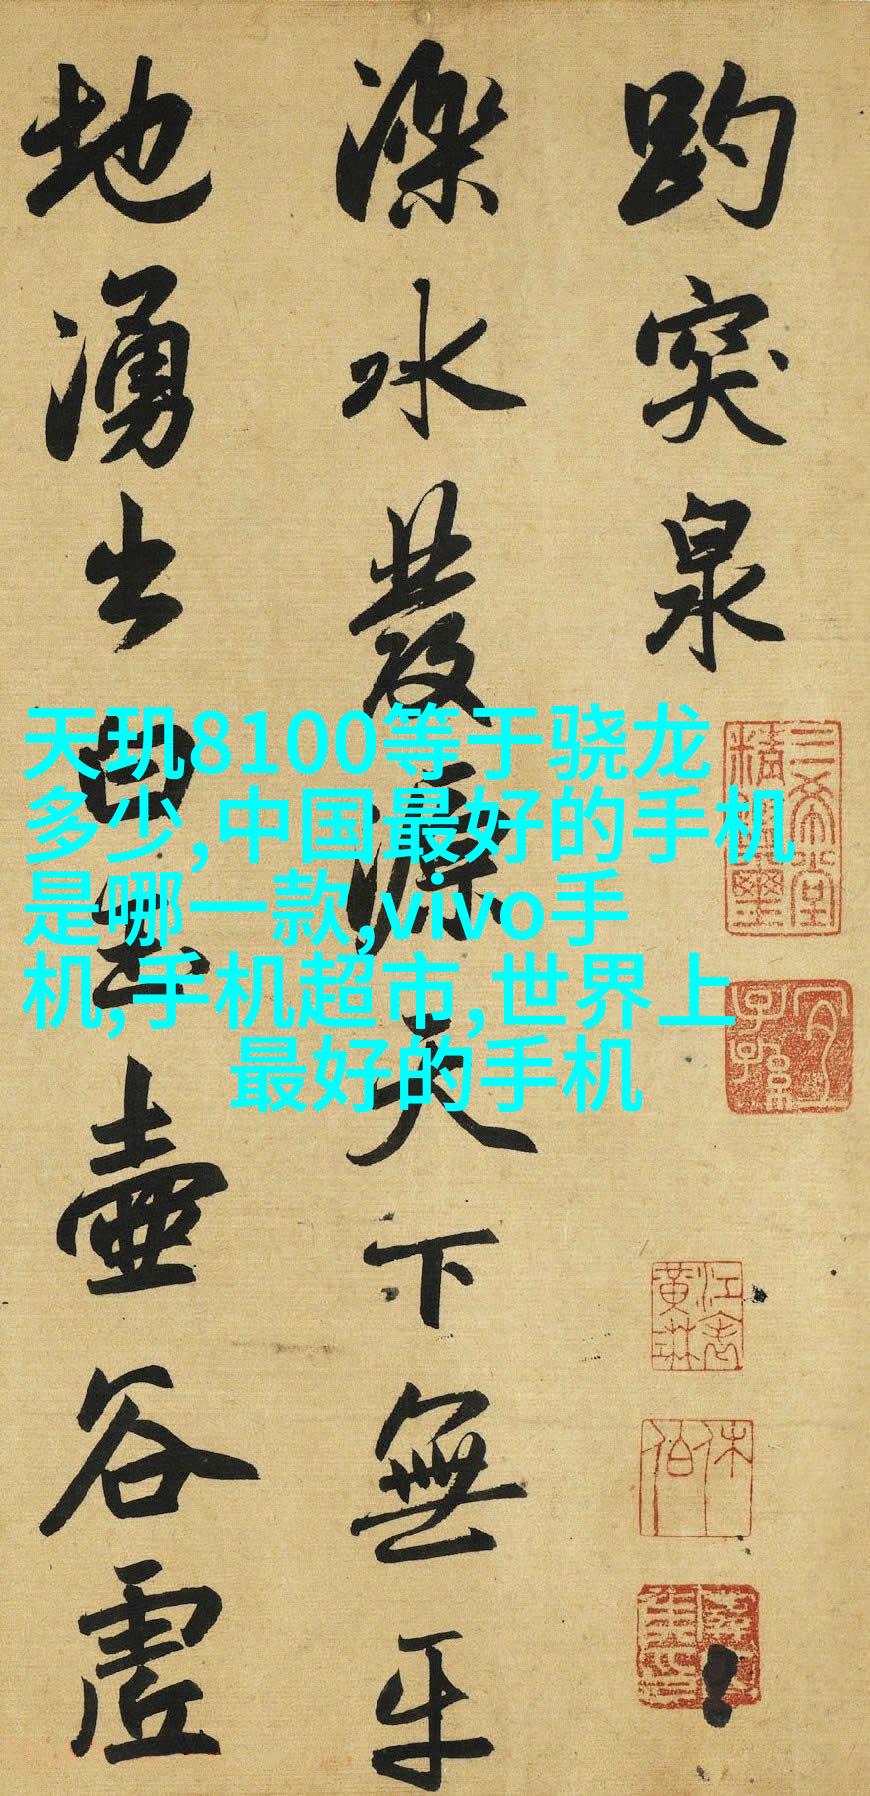 趵突泉
濼水發源天下無平
地湧出白玉壺谷虛
天玑8100等于骁龙
多少,中国最好的手机
是哪一款,vivo手
机,手机超市,世界上
最好的手机
三希堂
精鑑璽
宜
子孫
江表
黃琳
休
伯